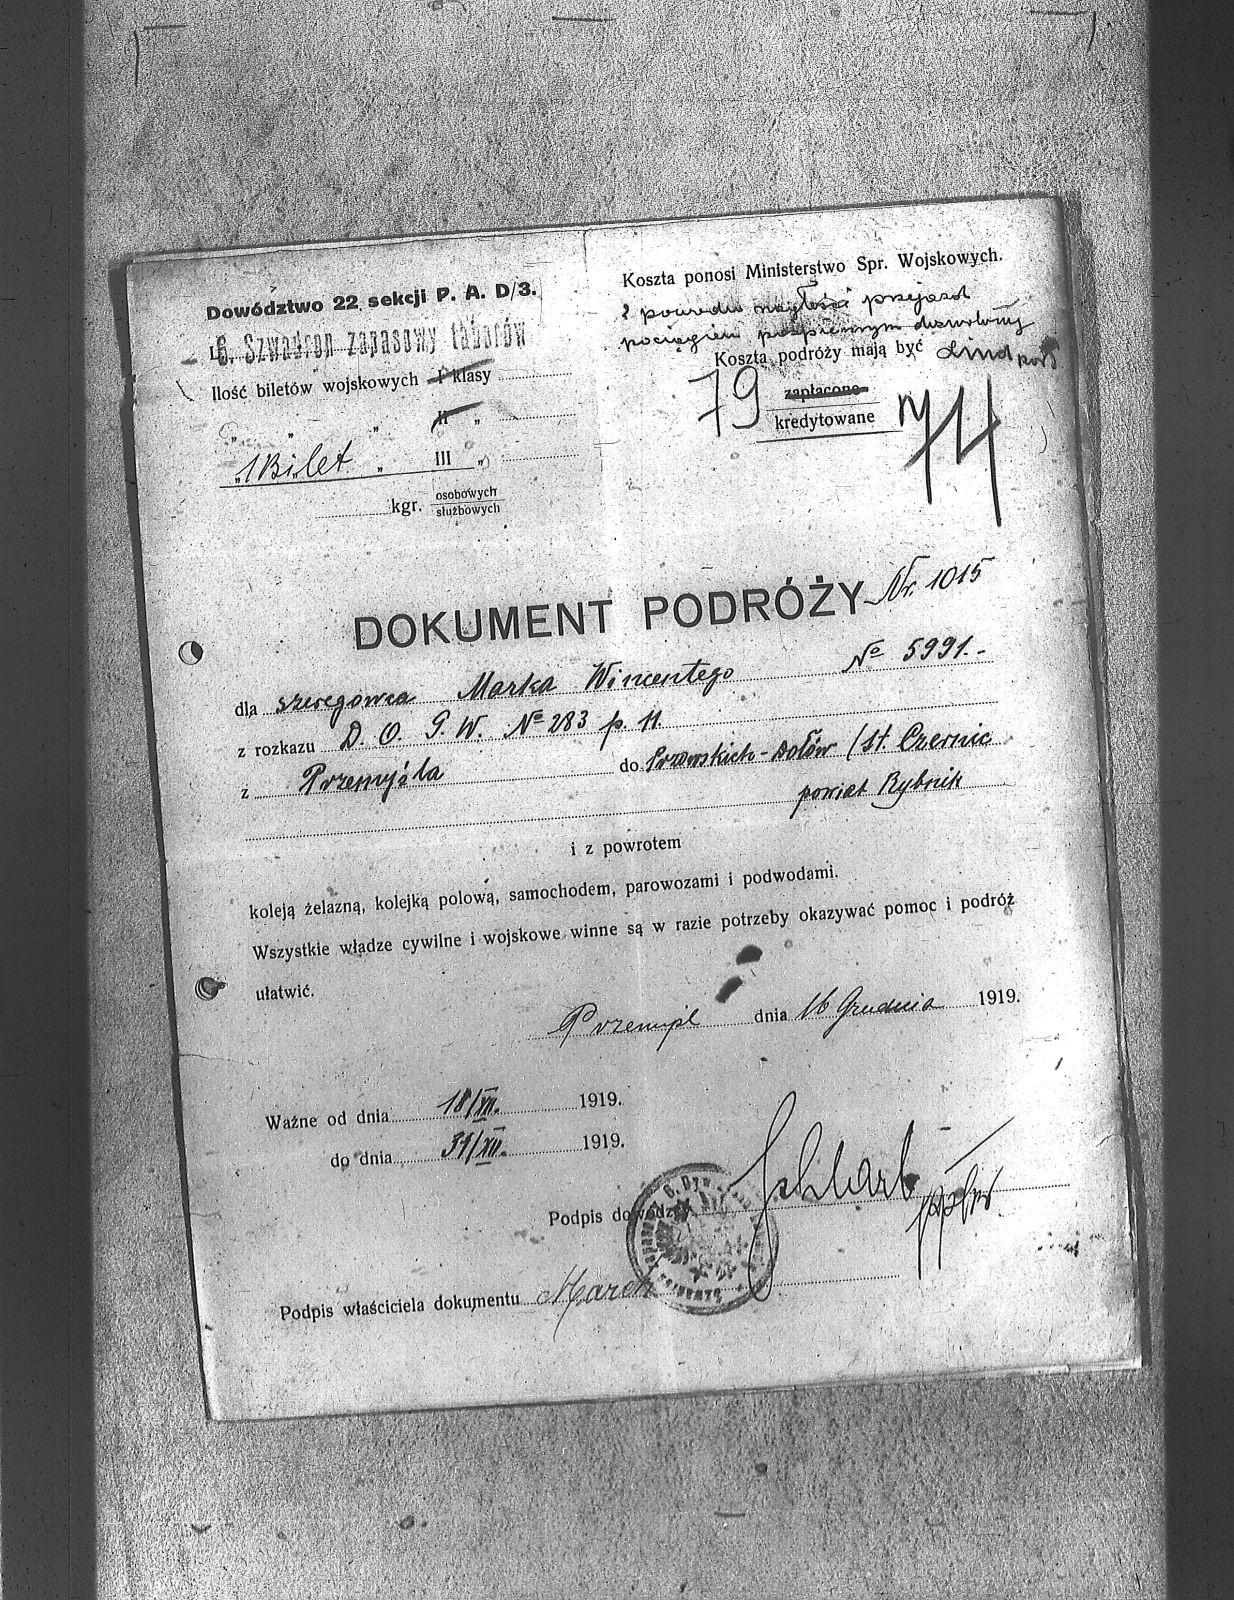 Dowództwo 22 sekcji P. A. D/3.
L. 6. Szwadron zapasowy taborów
Ilość biletów wojskowych I klasy
„ „ „ II „
„ 1 Bilet „ III „
kgr. osobowych
służbowych
Koszta ponosi Ministerstwo Spr. Wojskowych.
z powodu nagłości przejazd
pociągiem pospiesznym dozwolony
Koszta podróży mają być
79 zapłacone
kredytowane
DOKUMENT PODRÓŻY Nr. 1015
dla szeregowca Marka Wincentego No 5991.-
z rozkazu D. O. G. W. No 283 p. 11.
z Przemyśla do Dołów (st. Czernic
powiat Rybnik
i z powrotem
koleją żelazną, kolejką polową, samochodem, parowozami i podwodami.
Wszystkie władze cywilne i wojskowe winne są w razie potrzeby okazywać pomoc i podróż
ułatwić.
Przemyśl dnia 16 Grudnia 1919.
Ważne od dnia 18/XII. 1919.
do dnia 31/XII. 1919.
Podpis dowódzcy
Podpis właściciela dokumentu Marek